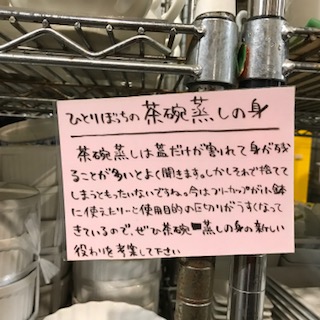 ひとりぼっちの茶碗蒸しの身
茶碗蒸しは蓋だけが割れて身が残
ることが多いとよく聞きます。しかしそれで捨てて
しまうともったいないですね。今はフリーカップがい小鉢
に使えたりーと使用目的の区切りがうすくなって
きているので、ぜひ茶碗蒸しの身の新しい
役わりを考案して下さい